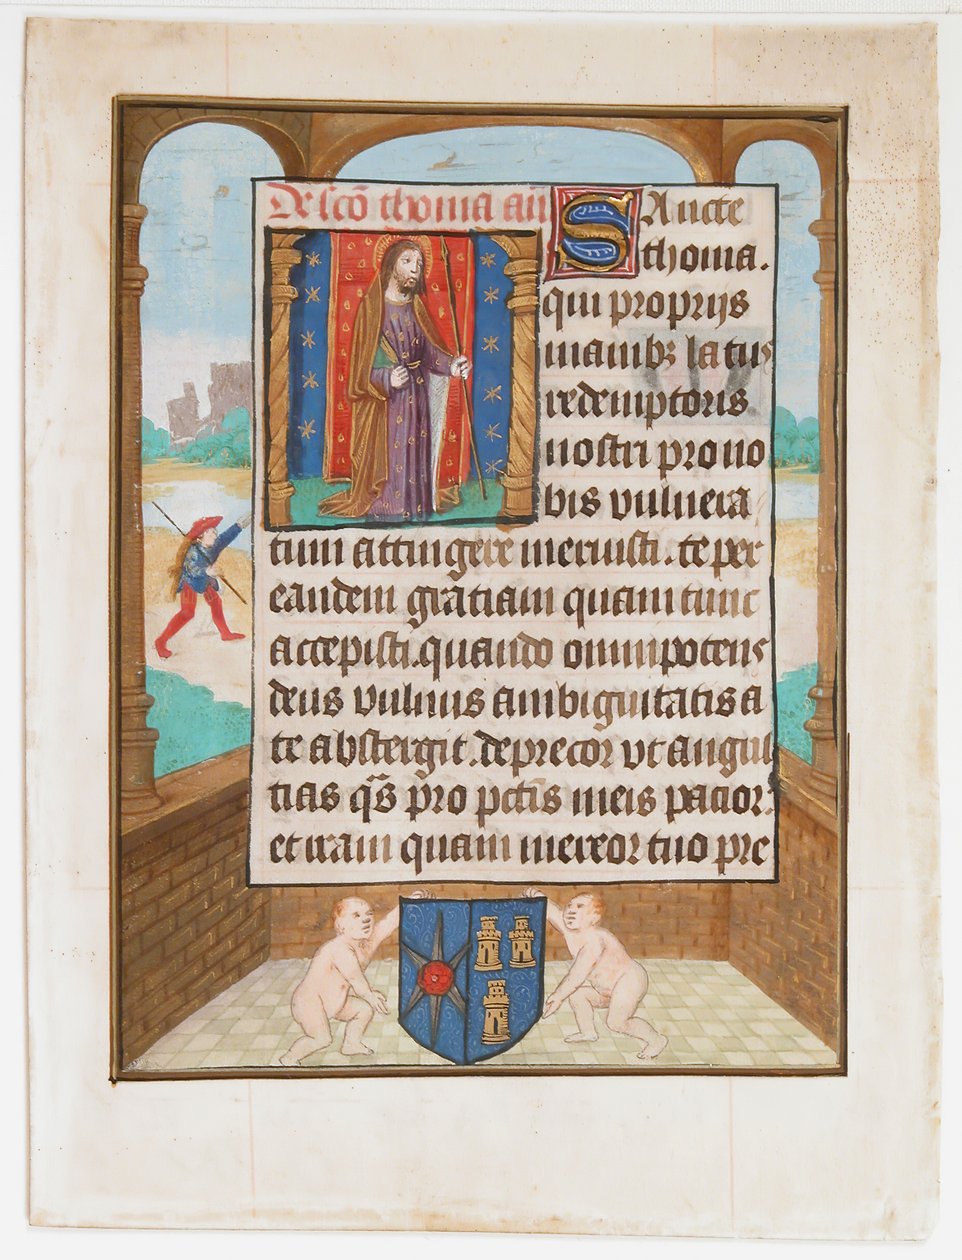 De scō thoma añ
Sancte
thoma.
qui proprijs
manibꝫ latus
redemptoris
nostri pro no
bis vulnera
tum attingere meruisti. te per
eandem gratiam quam tunc
accepisti. quando omnipotens
deus vulnus ambiguitatis a
te abstergit. deprecor vt angus
tias qͣs pro pctīs meis pacior:
et iram quam mereor tuo pre